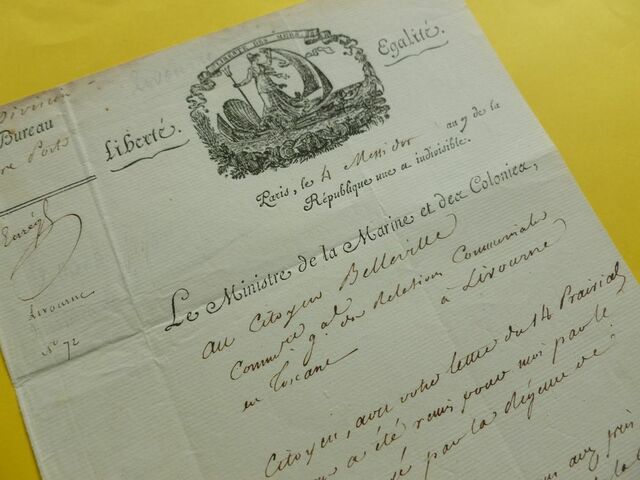 Division
Bureau
Ports
Liberté.
LIBERTÉ DES MERS
Egalité.
Paris, le 4 Messidor an 9 de la
République une et indivisible.
Enrég
Livourne
N° 72
Le Ministre de la Marine et des Colonies,
au Citoyen Belleville
Commre gal des Relations Commerciales
en Toscane à Livourne
Citoyen, avec votre lettre du 14 Prairial
a été remis pour moi par le
par la régence de